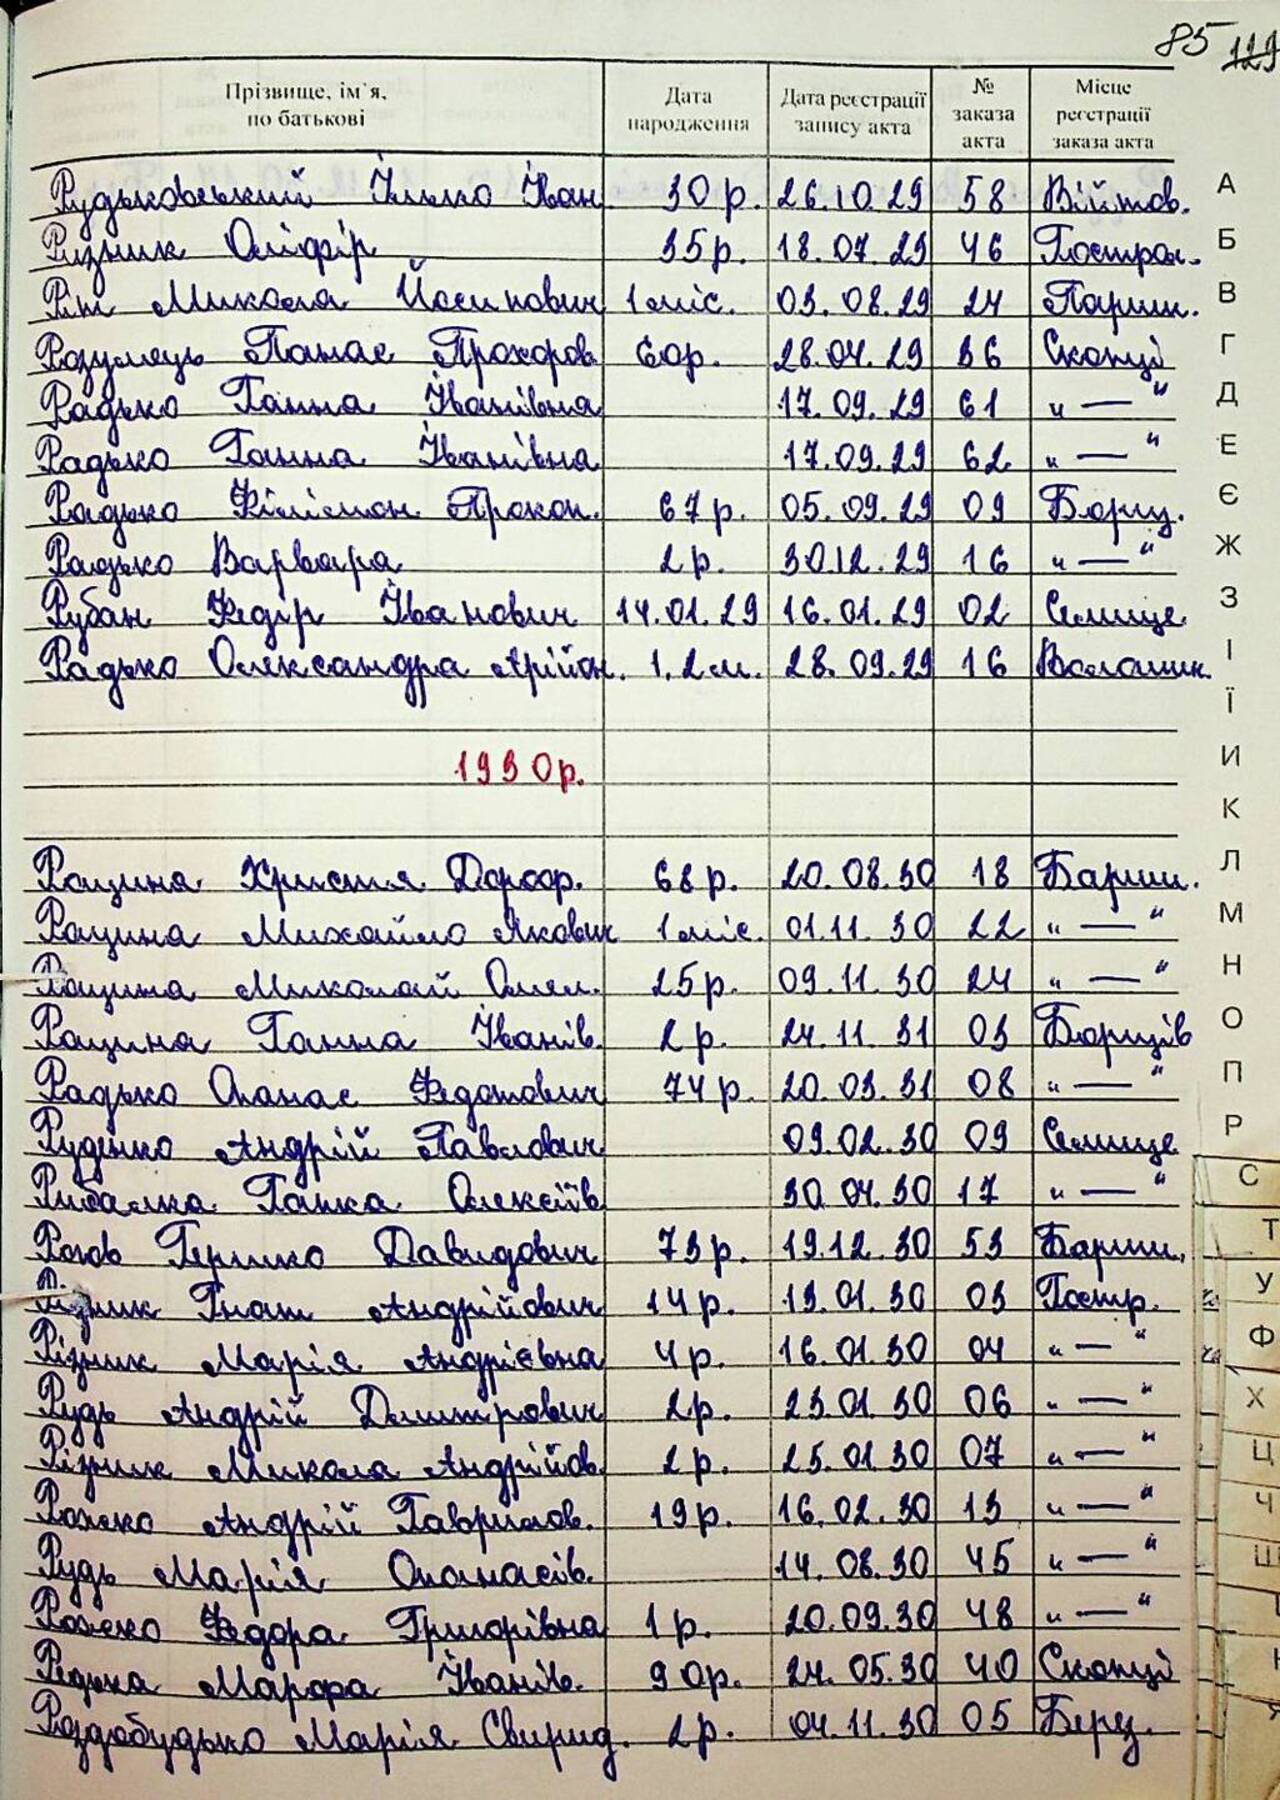 85 129
Прізвище, ім'я, по батькові | Дата народження | Дата реєстрації запису акта | № заказа акта | Місце реєстрації заказа акта
Рудьковський Ілько Іван. 30 р. 26.10.29 58 Війтов. А
Ризник Оліфір 35 р. 18.07.29 46 Построл. Б
Рит Микола Йосипович 1 міс. 03.08.29 24 Париш. В
Розумець Панас Прохоров. 60р. 28.04.29 36 Скопці Г
Радько Ганна Іванівна 17.09.29 61 „ — " Д
Радько Ганна Іванівна 17.09.29 62 „ — " Е
Радько Філімон Прокоп. 67 р. 05.09.29 09 Борщ. Є
Радько Варвара 2 р. 30.12.29 16 „ — " Ж
Рубан Федір Іванович 14.01.29 16.01.29 02 Селище З
Радько Олександра Арійон. 1,2 м. 28.09.29 16 Волошин. І
Ї
1930р. И
К
Рацина Христя Дороф. 68 р. 20.08.30 18 Бариш. Л
Рацина Михайло Якович 1 міс. 01.11.30 22 „ — " М
Рацина Миколай Омел. 25 р. 09.11.30 24 „ — " Н
Рацина Ганна Іванів. 2 р. 24.11.31 03 Борщів О
Радько Опанас Федотович 74 р. 20.03.31 08 „ — " П
Руденко Андрій Павлович 09.02.30 09 Селище Р
Рибалка Ганка Олексіїв 30.04.30 17 „ — " С
Рогов Гершко Давидович 73 р. 19.12.30 53 Бариш. Т
Різник Гнат Андрійович 14 р. 13.01.30 03 Постр. У
Різник Марія Андріївна 4 р. 16.01.30 04 „ — " Ф
Рудь Андрій Дмитрович 2р. 23.01.30 06 „ — " Х
Різник Микола Андрійов. 2 р. 25.01.30 07 „ — " Ц
Рожко Андрій Гаврилов. 19 р. 16.02.30 13 „ — " Ч
Рудь Марія Опанасів. 14.08.30 45 „ — " Ш
Рожко Федора Григорівна 1 р. 20.09.30 48 „ — "
Редька Марфа Іванів. 90р. 24.05.30 40 Скопці
Роздобудько Марія Свирид. 2р. 04.11.30 05 Берез. Я